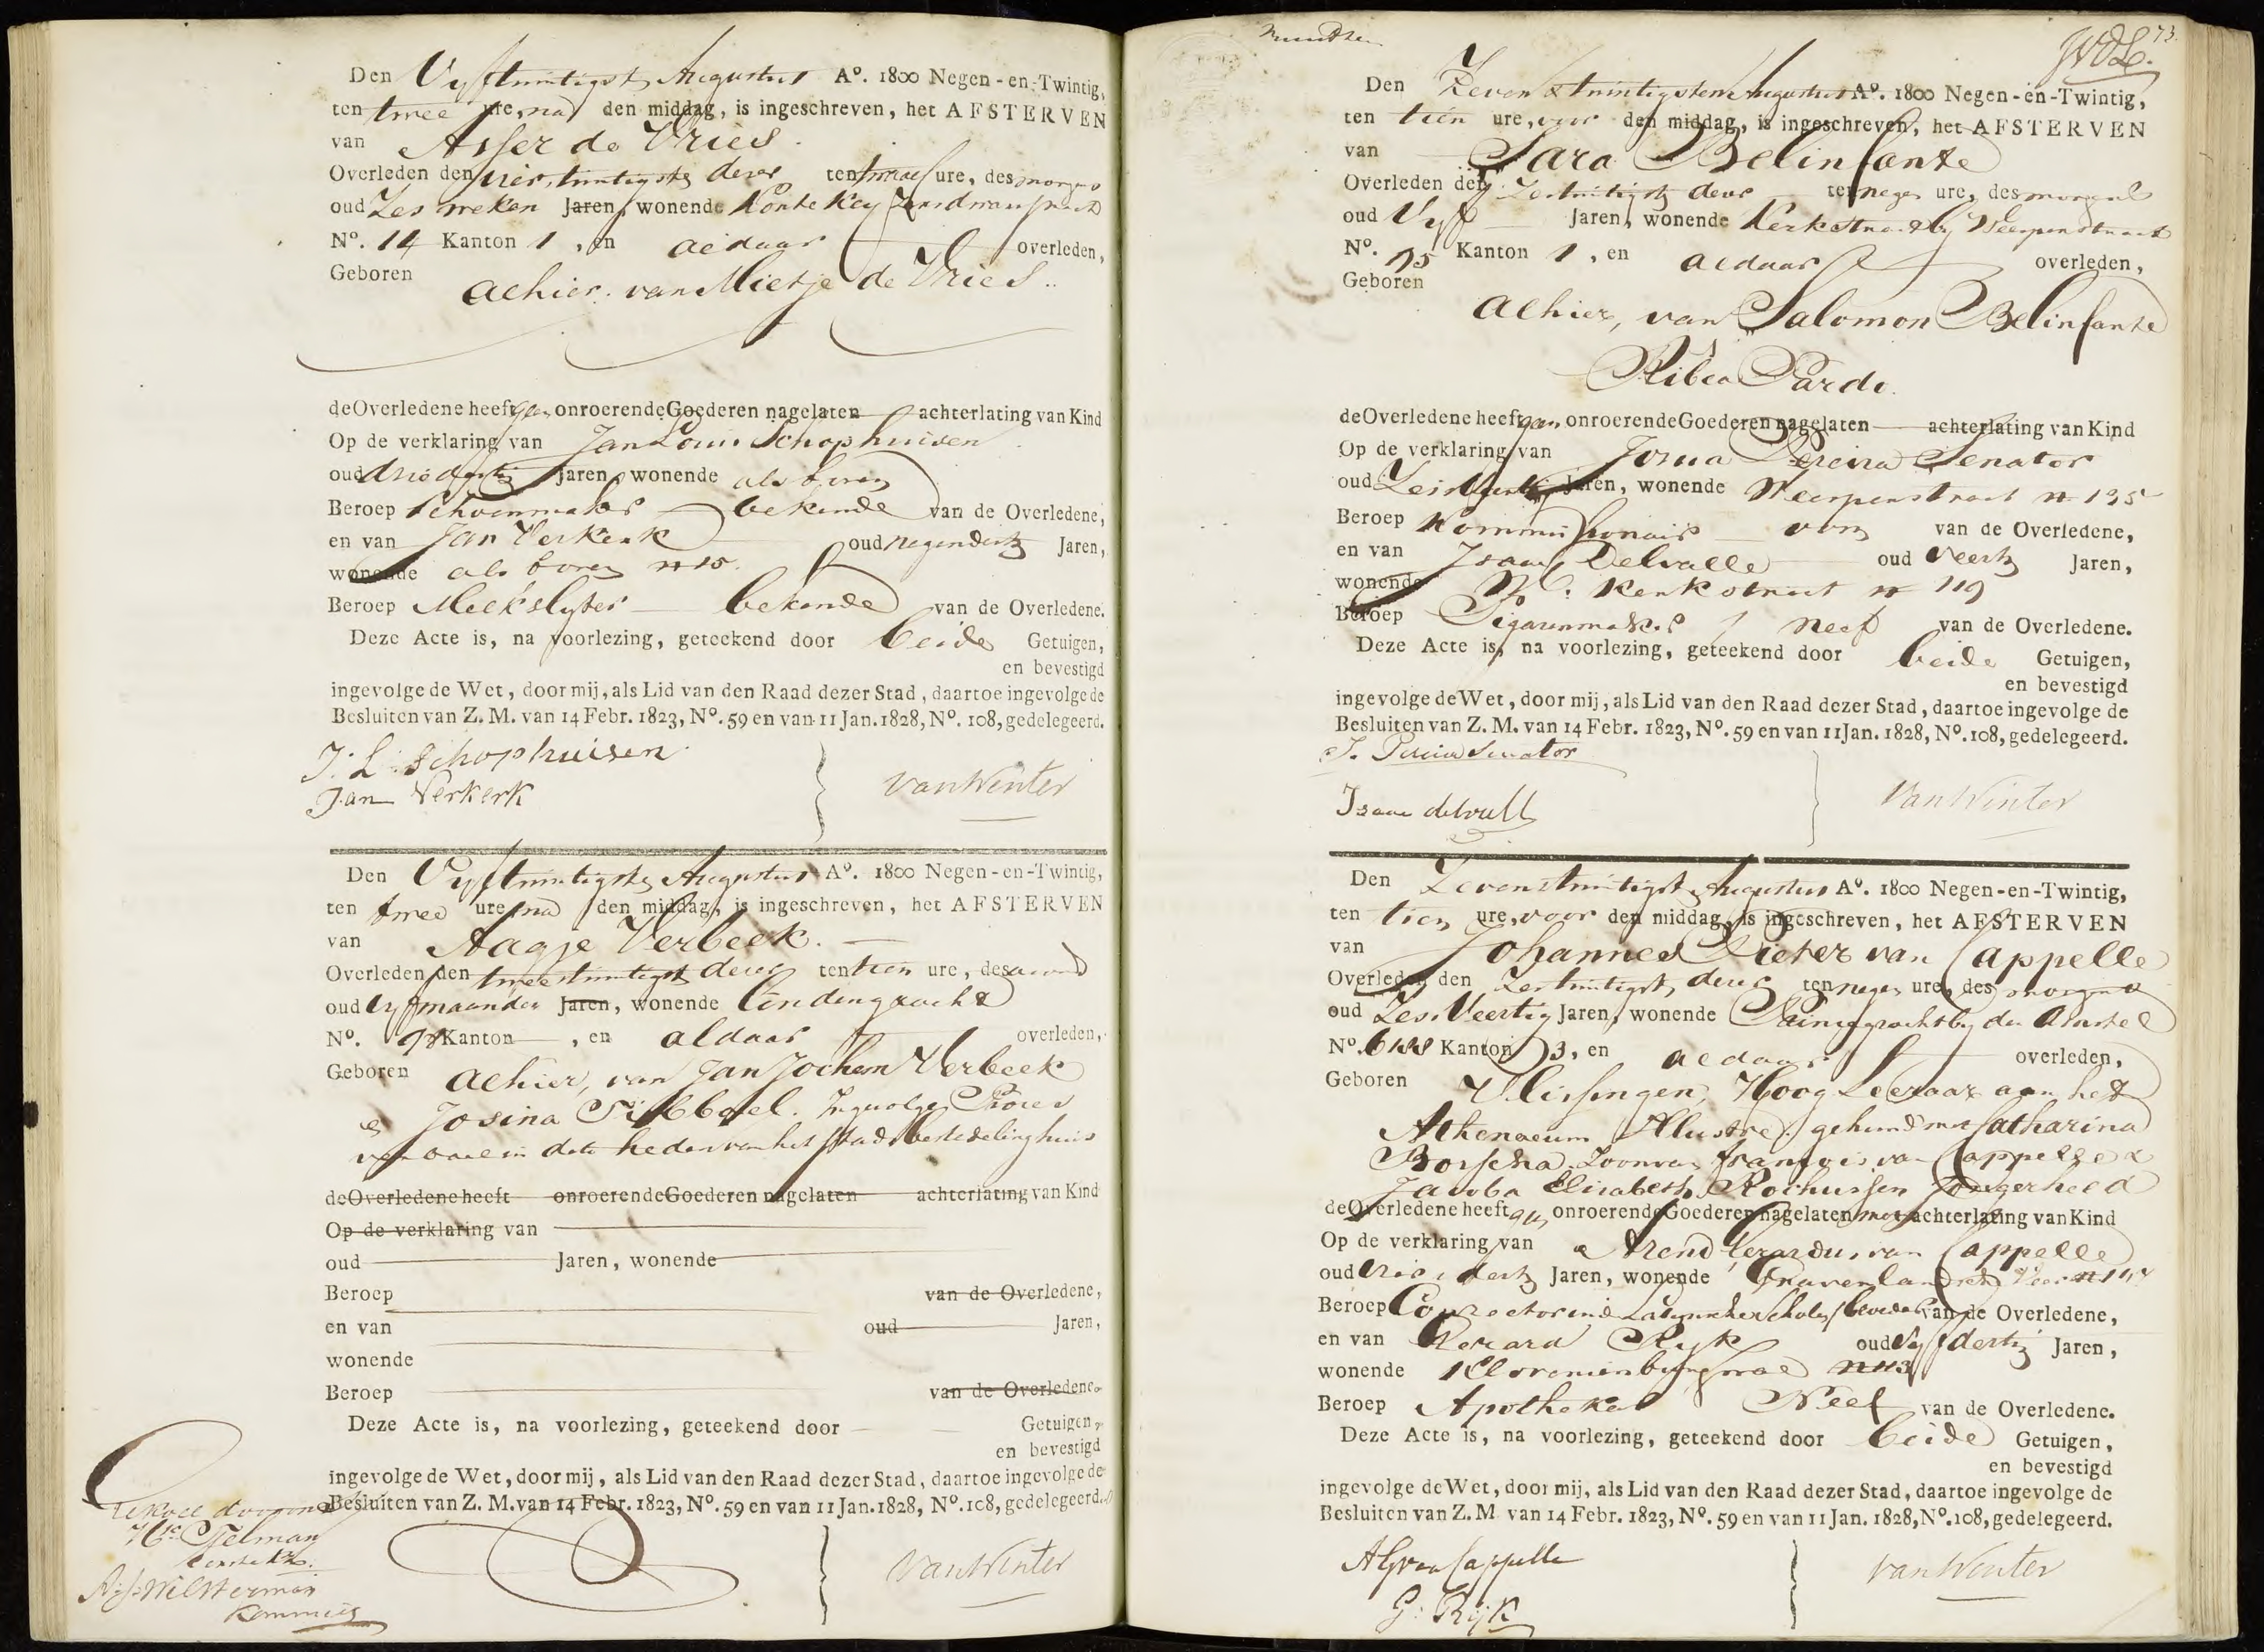 Den Vyfentwintigste Augustus Aº. 1800 Negen-en-Twintig,
ten twee ure, na den middag, is ingeschreven, het AFSTERVEN
van Asser de Vries
Overleden den vierentwintigste dezer ten ure, des morgens
oud Zes weken Jaren, wonende Korte Key
Nº. 14 Kanton 1, en aldaar overleden,
Geboren alhier, van Mietje de Vries
de Overledene heeft geen onroerende Goederen nagelaten achterlating van Kind
Op de verklaring van Jan Louis Schophuisen
oud drie dertig Jaren, wonende als boven
Beroep Schoenmaker bekende van de Overledene,
en van Jan Verkerk oud negendertig Jaren,
wonende als boven nº 15
Beroep Meekslyter bekende van de Overledene.
Deze Acte is, na voorlezing, geteekend door beide Getuigen,
en bevestigd
ingevolge de Wet, door mij, als Lid van den Raad dezer Stad, daartoe ingevolge de
Besluiten van Z. M. van 14 Febr. 1823, Nº. 59 en van 11 Jan. 1828, Nº. 108, gedelegeerd.
J: L: Schophuisen
Jan Verkerk
Van Winter
Den Vyfentwintigste Augustus Aº. 1800 Negen-en-Twintig,
ten twee ure na den middag, is ingeschreven, het AFSTERVEN
van Aagje Verbeek.
Overleden den tweeentwintigste dezer ten tien ure, des avond
oud vyf maanden Jaren, wonende Lindengracht
Nº. Kanton , en aldaar overleden,
Geboren alhier, van Jan Jochem Verbeek
en Josina Ingevolge Proces
verbaal in dato heden van het Stads bestedelinghuis
de Overledene heeft onroerende Goederen nagelaten achterlating van Kind
Op de verklaring van
oud Jaren, wonende
Beroep van de Overledene,
en van oud Jaren,
wonende
Beroep van de Overledene.
Deze Acte is, na voorlezing, geteekend door Getuigen,
en bevestigd
ingevolge de Wet, door mij, als Lid van den Raad dezer Stad, daartoe ingevolge de
Besluiten van Z. M. van 14 Febr. 1823, Nº. 59 en van 11 Jan. 1828, Nº. 108, gedelegeerd.
Telman
Wilsterman
Kommies
Van Winter
73.
Den Zevenentwintigsten Augustus Aº. 1800 Negen-en-Twintig,
ten tien ure, voor den middag, is ingeschreven, het AFSTERVEN
van Sara Belinfante
Overleden den Zesentwintigste dezer ten negen ure, des morgens
oud Vyf Jaren, wonende Kerkstraat by Weesperstraat
Nº. 95 Kanton 1, en aldaar overleden,
Geboren alhier, van Salomon Belinfante
Ribca Pardo.
de Overledene heeft geen onroerende Goederen nagelaten achterlating van Kind
Op de verklaring van Josua Pereira Senator
oud Jaren, wonende Weesperstraat nº 135
Beroep Kommissionair oom van de Overledene,
en van Isaac Delvalle oud Veertig Jaren,
wonende N: Kerkstraat nº 119
Beroep Sigarenmaker neef van de Overledene.
Deze Acte is, na voorlezing, geteekend door beide Getuigen,
en bevestigd
ingevolge de Wet, door mij, als Lid van den Raad dezer Stad, daartoe ingevolge de
Besluiten van Z. M. van 14 Febr. 1823, Nº. 59 en van 11 Jan. 1828, Nº. 108, gedelegeerd.
J. Pereira Senator
Isaac delvalle
Van Winter
Den Zevenentwintigste Augustus Aº. 1800 Negen-en-Twintig,
ten tien ure, voor den middag, is ingeschreven, het AFSTERVEN
van Johannes Pieter van Cappelle
Overleden den Zesentwintigste dezer ten negen ure, des morgens
oud Zes Veertig Jaren, wonende Prinsegracht by den Amstel
Nº. Kanton 3, en aldaar overleden,
Geboren Vlissingen, Hoog Leeraar aan het
Athenaeum Illustre, gehuwd met Catharina
Borscha Zoon van François van Cappelle &
Jacoba Elisabeth Rochussen Jongerheld
de Overledene heeft geen onroerende Goederen nagelaten met achterlating van Kind
Op de verklaring van Arend Gerardus van Cappelle
oud drie dertig Jaren, wonende Gravenlandsche Veer
Beroep Conrector in de Latynsche Scholen broeder van de Overledene,
en van Gerard Ryk oud Vyf dertig Jaren,
wonende Kloveniersburgwal
Beroep Apotheker Neef van de Overledene.
Deze Acte is, na voorlezing, geteekend door beide Getuigen,
en bevestigd
ingevolge de Wet, door mij, als Lid van den Raad dezer Stad, daartoe ingevolge de
Besluiten van Z. M. van 14 Febr. 1823, Nº. 59 en van 11 Jan. 1828, Nº. 108, gedelegeerd.
AGvan Cappelle
G: Rijk
van Winter